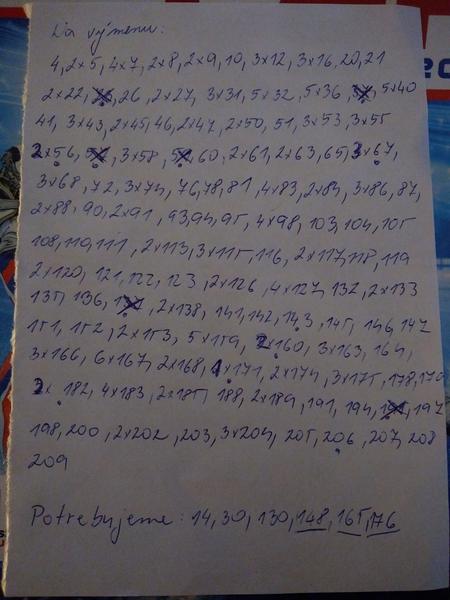 Na výmenu:
4, 2x5, 4x7, 2x8, 2x9, 10, 3x12, 3x16, 20, 21
2x22, 26, 2x27, 3x31, 5x32, 5x36, 5x40
41, 3x43, 2x45, 46, 2x47, 2x50, 51, 3x53, 3x55
2x56, 3x58, 60, 2x61, 2x63, 65, 3x67,
3x68, 72, 3x74, 76, 78, 81, 4x83, 2x84, 3x86, 87,
2x88, 90, 2x91, 93, 94, 95, 4x98, 103, 104, 105
108, 110, 111, 2x113, 3x115, 116, 2x117, 118, 119
2x120, 121, 122, 123, 2x126, 4x127, 132, 2x133
135, 136, 2x138, 141, 142, 143, 145, 146, 147
151, 152, 2x153, 5x159, 2x160, 3x163, 164,
3x166, 6x167, 2x168, 1x171, 2x174, 3x175, 178, 179
3x 182, 4x183, 2x185, 188, 2x189, 191, 194, 197
198, 200, 2x202, 203, 3x204, 205, 206, 207, 208
209
Potrebujeme: 14, 30, 130, 148, 165, 176
ec